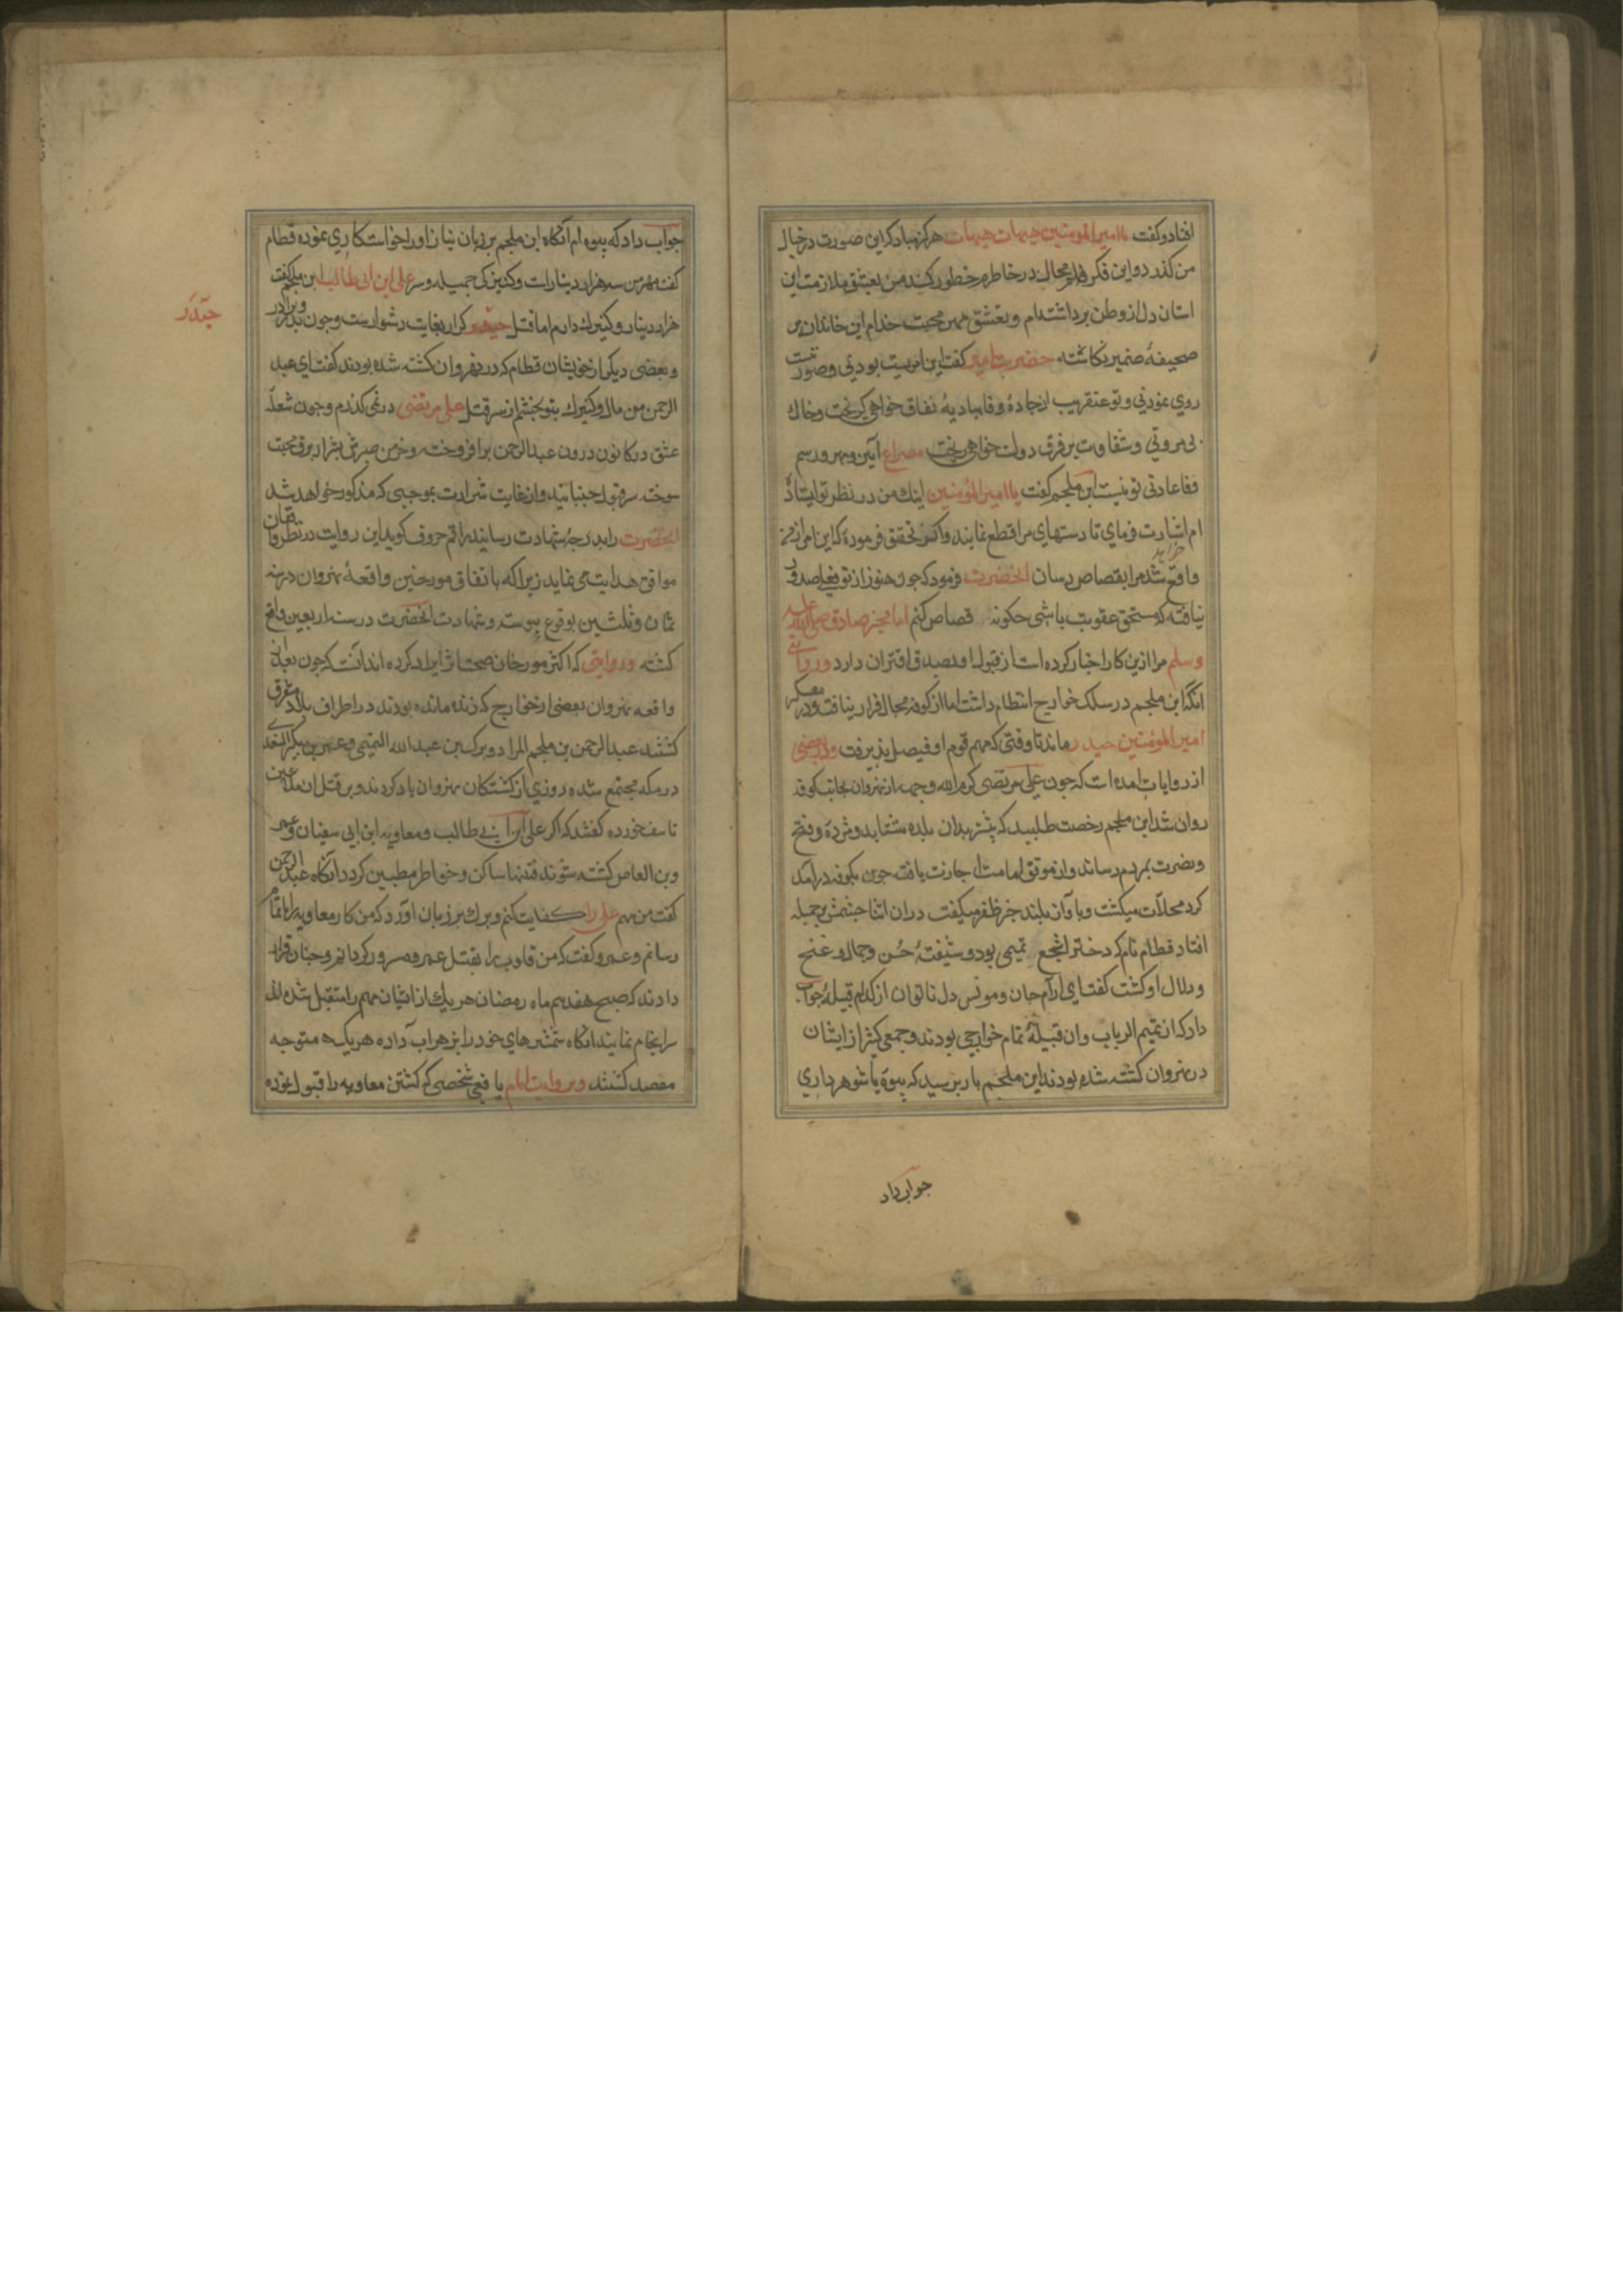 افتاد و کفت یا امیرالمومنین هیهات هیهات هرکز مباد که این صورت در خیال
من کذرد و این فکر محال در خاطرم خطور کند من بعشق ملازمت این
استان دل از وطن برداشته‌ام و بعشق محبت خدام این خاندان بر
صحیفهٔ ضمیر نکاشته حضرت امیر کفت این امریست بودنی و صورتیست
روی نمودنی و تو عنقریب از جادهٔ وفا ببادیهٔ نفاق خواهی کریخت و خاک
بی مروتی و شقاوت بر فرق دولت خواهی ریخت مصراع آیین و مهر و رسم
وفا عادتی تو نیست ابن ملجم کفت یا امیرالمؤمنین اینک من در نظر تو ایستاده
ام اشارت فرمای تا دستهای مرا قطع نمایند و اکر تحقیق فرمودهٔ که این امر از من
واقع خواهد شد مرا بقصاص رسان انحضرت فرمود که چون هنوز از تو فعلی صدور
نیافته که مستحق عقوبت باشی چکونه قصاص کنم اما مخبر صادق صلی الله علیه
وسلم مرا ازین کار اخبار کرده است از قبول او بصدق اقتران دارد و روایتی
انکه ابن ملجم در سلک خوارج انتظام داشت اما از کوفه مجال فرار نیافت و در معسکر
امیرالمؤمنین حیدر ماند تا وقتی که مهم قوم او فیصل پذیرفت و در بعضی
از روایات امده است که چون علی مرتضی کرم الله وجهه از نهروان بجانب کوفه
روان شد ابن ملجم رخصت طلبید که پیشتر بدان بلده شتابد و مژدهٔ فتح
و نصرت بمردم رساند و از موقف امامت اجازت یافته چون بکوفه درآمد
کرد محلات میکشت و بآواز بلند خبر ظفر میکفت دران اثنا چشمش بر جمیله
افتاد قطام نام که دختر اشجع تمیمی بود و شیفتهٔ حُسن و جمال و غنج
و دلال او کشت کفت ای آرام جان و مونس دل ناتوان از کدام قبیلهٔ جواب
داد که از تمیم الرباب و ان قبیله تمام خوارج بودند و جمعی کثیر از ایشان
در نهروان کشته شده بودند ابن ملجم باز پرسید که بیوهٔ یا شوهر داری
جواب داد
جواب داد که بیوه ام آنکاه ابن ملجم بر زبان نیاز او را خواستکاری نموده قطام
کفت مهر من سه هزار دینارات و کنیزکی جمیله و سر علی ابن ابی طالب ابن ملجم کفت
هزار دینار و کنیزک دارم اما قتل حیدر کرار بغایت دشوارست و چون پدر و برادر
حیدر
و بعضی دیکر از خویشان قطام که در نهروان کشته شده بودند کفت ای عبد
الرحمن من مال و کنیزک بتو بخشیدم از سر قتل علی مرتضی در نمی کذرم و چون شعلهٔ
عشق در کانون درون عبدالرحمن برافروخت و خرمن صبرش بشرار برق محبت
سوخت سر قبول جنبانید و از غایت شرارت بموجبی که مذکور خواهد شد
انحضرت را بدرجهٔ شهادت رسانید راقم حروف کوید این روایت در نظر
موافق هدایت می نماید زیرا که باتفاق مورخین واقعهٔ نهروان در سنه
ثمان و ثلثین بوقوع پیوسته و شهادت انحضرت در سنه اربعین واقع
کشته و روایتی که اکثر مورخان صحت آنرا ایراد کرده اند آنست که چون بعد از
واقعه نهروان بعضی از خوارج که زنده مانده بودند در اطراف بلاد متفرق
کشتند عبدالرحمن بن ملجم المرادی و برک بن عبدالله التمیمی و عمرو بن بکر السعدی
در مکه مجتمع شده روزی از کشتکان نهروان یاد کردند و بر قتل ان ملاعین
تاسف خورده کفتند که اکر علی ابن ابی طالب و معاویه ابن ابی سفیان و عمرو
وبن العاص کشته شوند فتنها ساکن و خواطر مطمین کردد آنکاه عبدالرحمن
کفت من مهم علی را کفایت کنم و برک بر زبان آورد که من کار معاویه را باتمام
رسانم و عمرو کفت که من بقتل عمرو مسرور کردانم و چنان قرار
دادند که صبح هفدهم ماه رمضان هر یک از ایشان مهم را متقبل شده اند
سرانجام نمایند آنکاه شمشیرهای خود را بزهراب داده هر یک متوجه
مقصد کشتند و بروایت امام یافعی شخصی که کشتن معاویه را قبول نموده